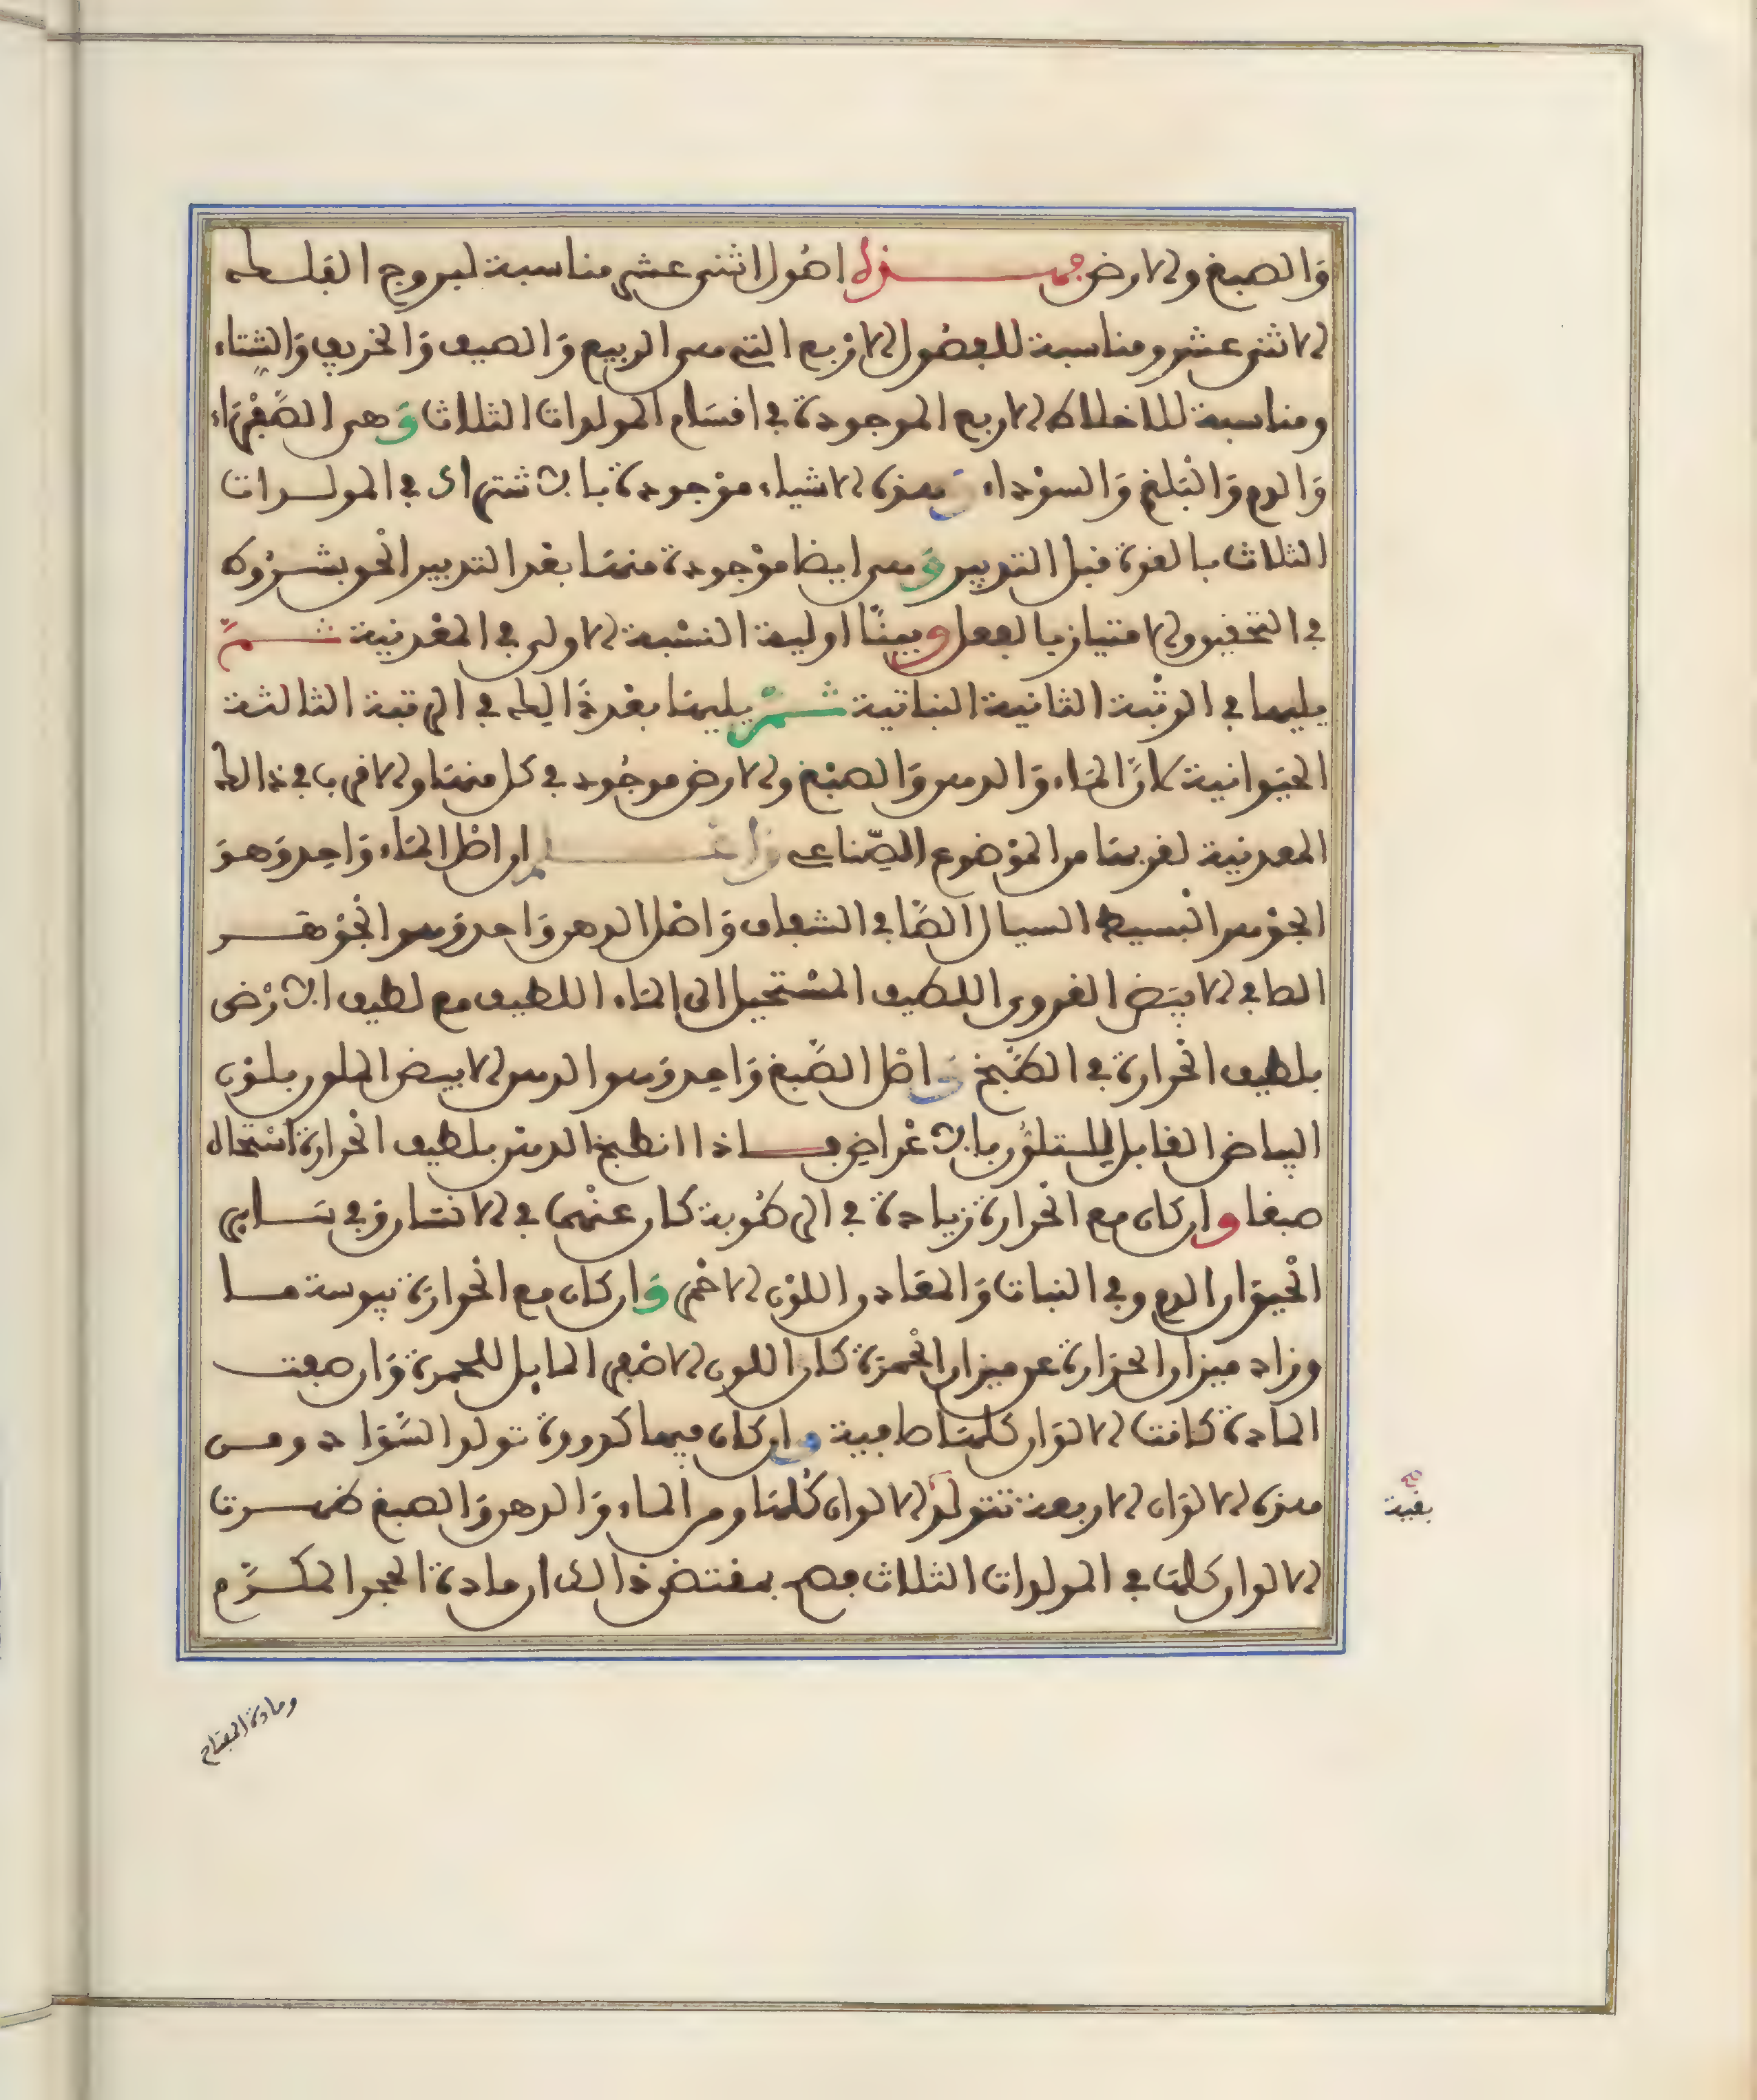 وَالصبغ والارض فهـــذه اصُول اثنى عشر مناسبة لبروج الفلك
الاثنى عشر ومناسبة للفصُول الارْبع التى هى الربيع وَالصيف وَالخريف وَالشتاء
ومناسبة للاخلاط الاربع الموجودة فى اقسَام المولدات الثلاث وَهى الصَّفْرَاء
وَالدم وَالبَلغم وَالسوْداء وَهذه الاشياء موْجودة بالاشتراك فى المولدات
الثلاث بالقوة قبل التدبير وَهى ايضا موْجودة منهَا بعْد التدبير الحق بشرُوط
فى التحقيق والامتياز بالفعل وبهذا اولية النسْبة الاولى فى المعْدنية ثـــمّ
يليها فى الرتْبة الثانية النباتية ثـــمّ يليهَا بعْد ذَالك فى الرتبة الثالثة
الحيَوانية لانّ المَاء وَالدهن وَالصبْغ والارض موجُود فى كل منهَا والاقرب فى ذالك
المعدنية لقربهَا من الموْضوع الصّناعى وَاعْـــلم ان اصْل المَاء وَاحد وَهوَ
الجوْهر البْسيط السيال الصَّافى الشفاف وَاصْل الدهن وَاحد وَهو الجوْهَـر
الطافى الابيَض الغروى اللطيف المسْتحيل الى المَاء اللطيف مع لطيف الارْض
بلطيف الحْرارة فى الطبْخ وَاصْل الصَّبغ وَاحد وَهو الدهن الابيض الملون بلوْن
البياض القابل للتلوُّن بالاعْراض فـــاذا انطبخ الدهْن بلطيف الحْرارة اسْتحال
صبغا وان كان مع الحْرارة زيادة فى الرطُوبة كان عنْهما فى الانسَان وَفى سَـاير
الحْيوَان الدم وفى النبات وَالمعَادن اللوْن الاحْمر وَان كان مع الحْرارة يبوسة مـا
وزاد ميزان الحرَارة عن ميزان الحْمرَة كان اللون الاصْفر المايل للحمرة وَان صفت
المادة كانت الالوَان كلهَا صَافية وان كان فيها كدورة تولد السَّوَاد ومـن
هذه الالوَان الاربعة تتولدُ الالوان كُلهَا ومن الماء وَالدهن وَالصبغ ظهـــرت
الالوان كلهَا فى المولدات الثلاث فصح بمقتضى ذالك ان مادة الحجر المكــرّم
بقية
ومادة المفتاح